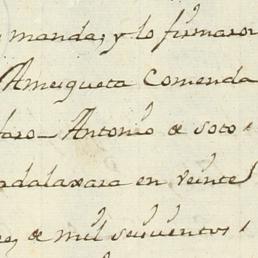 manda, y lo firmaron
Amezqueta Comenda
Antonio de Soto
dalaxara en veinte
de mil seiscientos